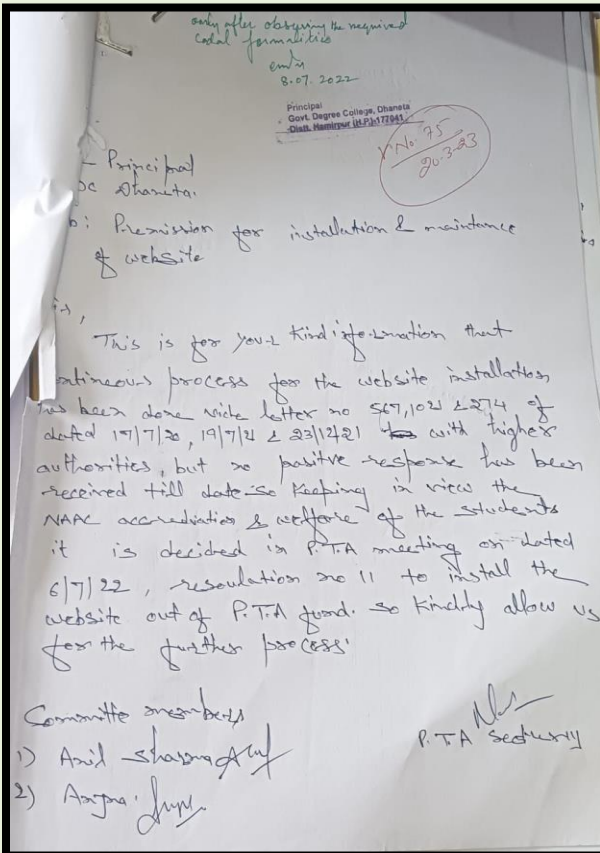 only after observing the required
codal formalities
8.07.2022
Principal
Govt. Degree College, Dhaneta
Distt. Hamirpur (H.P.)-177041
V No. 75
20-3-23
Principal
Dhaneta.
: Premission for installation & maintance
of website
,
This is for your kind information that
ontineous process for the website installation
has been done vide letter no 567, 102 & 274 of
dated 17/7/20, 19/7/21 & 23/12/21 with higher
authorities, but no positve response has been
received till date so keeping in view the
NAAC accrediation & welfare of the students
it is decided in P.T.A meeting on dated
6/7/22, resoulation no 11 to install the
website out of P.T.A fund. so kindly allow us
for the further process.
Committe members
P.T.A
1) Anil Sharma
2) Anjna